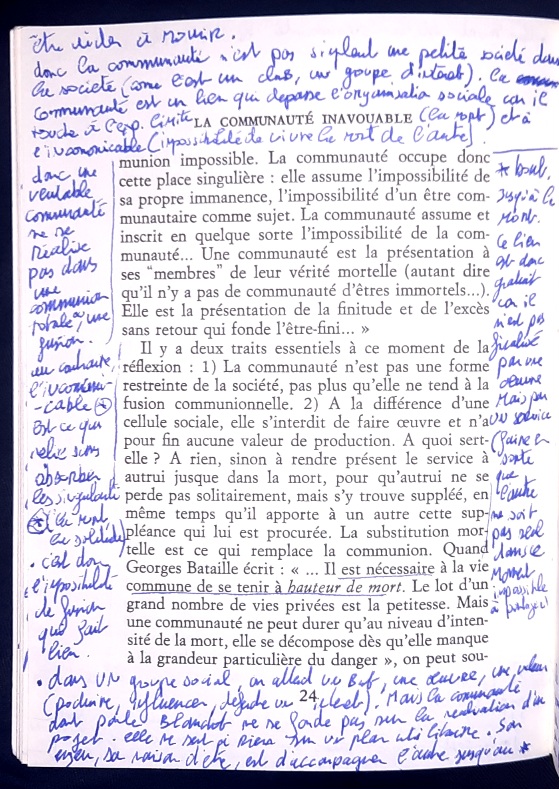 être aidé à mourir.
donc la communauté n'est pas simplement une petite société dans
la société (comme l'est un club, un groupe d'intérêt). La
communauté est un lien qui dépasse l'organisation sociale car il
touche à l'exp. limite (la mort) et à
LA COMMUNAUTÉ INAVOUABLE
l'incommunicable (impossibilité de vivre la mort de l'autre).
donc une
véritable
communauté
ne se
réalise
pas dans
une
communion
totale, une
fusion.
au contraire,
l'incommuni-
-cable
est ce qui
relie sans
absorber
les singularités
la mort,
la solitude
• c'est donc
l'impossibilité
de fusion
qui fait
lien.
munion impossible. La communauté occupe donc
cette place singulière : elle assume l'impossibilité de
sa propre immanence, l'impossibilité d'un être com-
munautaire comme sujet. La communauté assume et
inscrit en quelque sorte l'impossibilité de la com-
munauté... Une communauté est la présentation à
ses “membres” de leur vérité mortelle (autant dire
qu'il n'y a pas de communauté d'êtres immortels...).
Elle est la présentation de la finitude et de l'excès
sans retour qui fonde l'être-fini... »
Il y a deux traits essentiels à ce moment de la
réflexion : 1) La communauté n'est pas une forme
restreinte de la société, pas plus qu'elle ne tend à la
fusion communionnelle. 2) A la différence d'une
cellule sociale, elle s'interdit de faire œuvre et n'a
pour fin aucune valeur de production. A quoi sert-
elle ? A rien, sinon à rendre présent le service à
autrui jusque dans la mort, pour qu'autrui ne se
perde pas solitairement, mais s'y trouve suppléé, en
même temps qu'il apporte à un autre cette sup-
pléance qui lui est procurée. La substitution mor-
telle est ce qui remplace la communion. Quand
Georges Bataille écrit : « ... Il est nécessaire à la vie
commune de se tenir à hauteur de mort. Le lot d'un
grand nombre de vies privées est la petitesse. Mais
une communauté ne peut durer qu'au niveau d'inten-
sité de la mort, elle se décompose dès qu'elle manque
à la grandeur particulière du danger », on peut sou-
* bout,
jusqu'à la
mort.
Ce lien
est donc
gratuit
car il
n'est pas
finalisé
par une
œuvre
mais par
un service
(faire en
sorte
que
l'autre
ne soit
pas seul
dans ce
moment
impossible
à partager)
24
• dans un groupe social, on attend un but, une œuvre, une valeur
(produire, influencer, défendre un intérêt). Mais la communauté
dont parle Blanchot ne se fonde pas sur la réalisation d'un
projet. elle ne sert à rien sur un plan utilitaire. Son
enjeu, sa raison d'être, est d'accompagner l'autre jusqu'au *